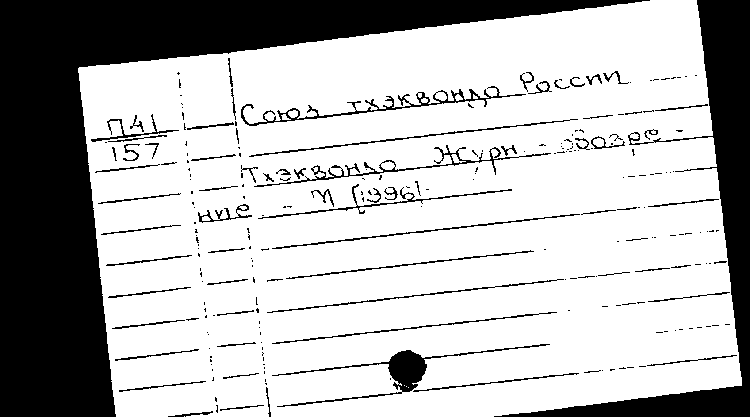 Союз тхэквондо России
П41
157
Тхэквондо Журн - обозре -
ние. - М [1996]